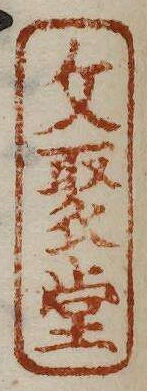 文聚堂